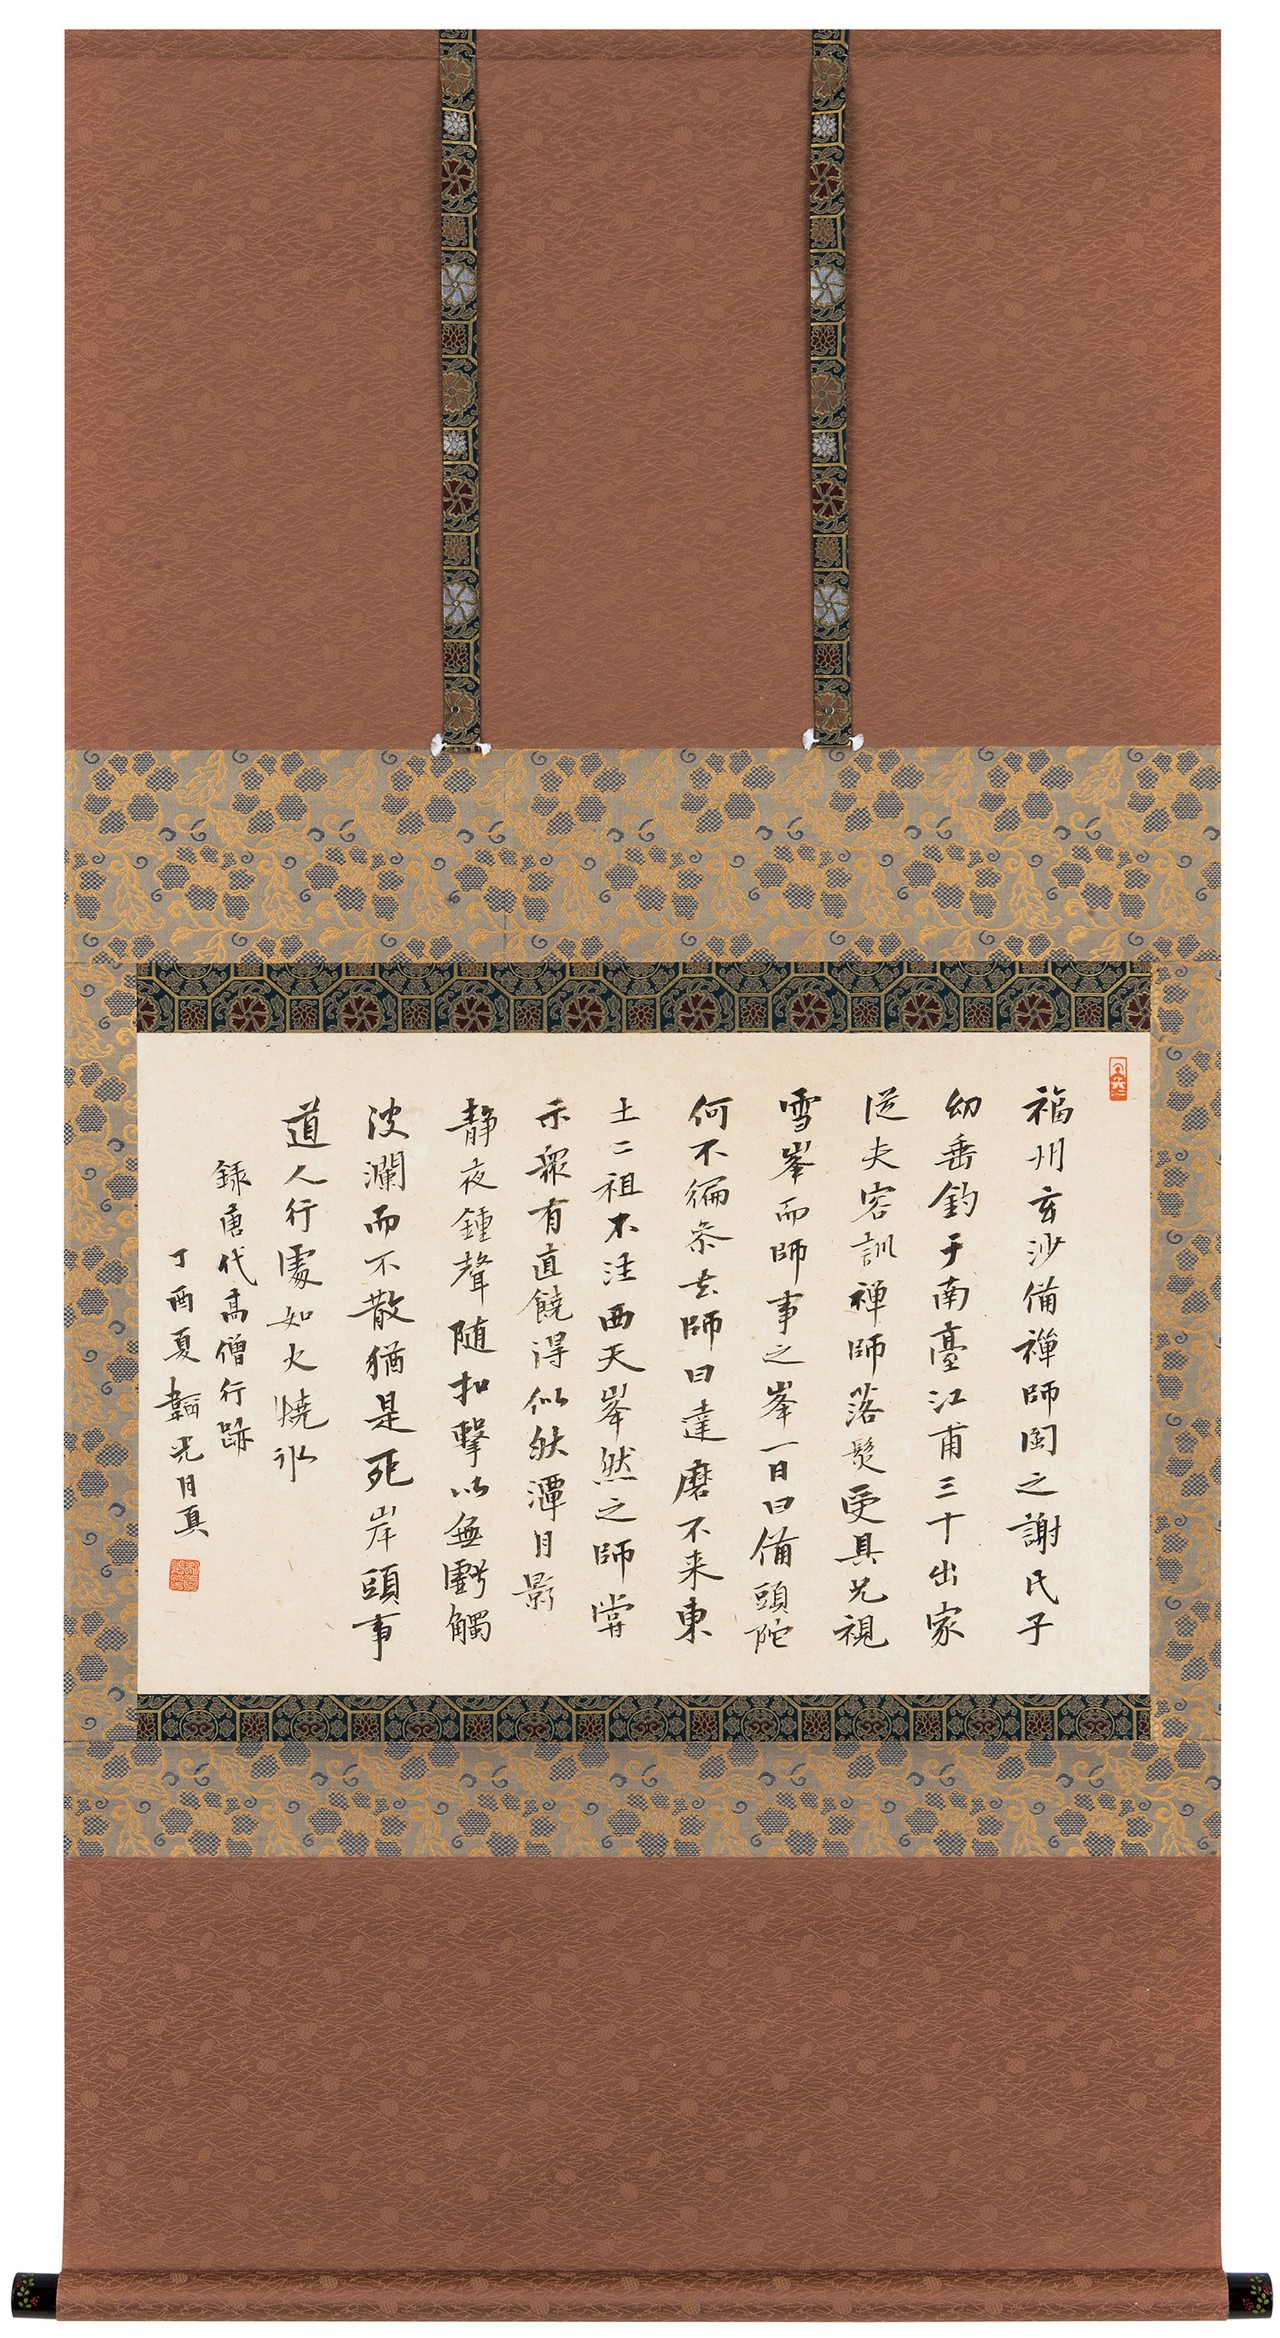 福州玄沙備禪師閩之謝氏子
幼垂釣于南臺江甫三十出家
從芙容訓禅師落髮受具兄視
雪峯而師事之峯一日曰備頭陀
何不徧叅去師曰達磨不来東
土二祖不往西天峯然之師嘗
示衆有直饒得似秋潭月影
靜夜鍾聲随扣擊以無虧觸
波瀾而不散猶是死岸頭事
道人行處如火燒冰
録唐代高僧行跡
丁酉夏韜光月真